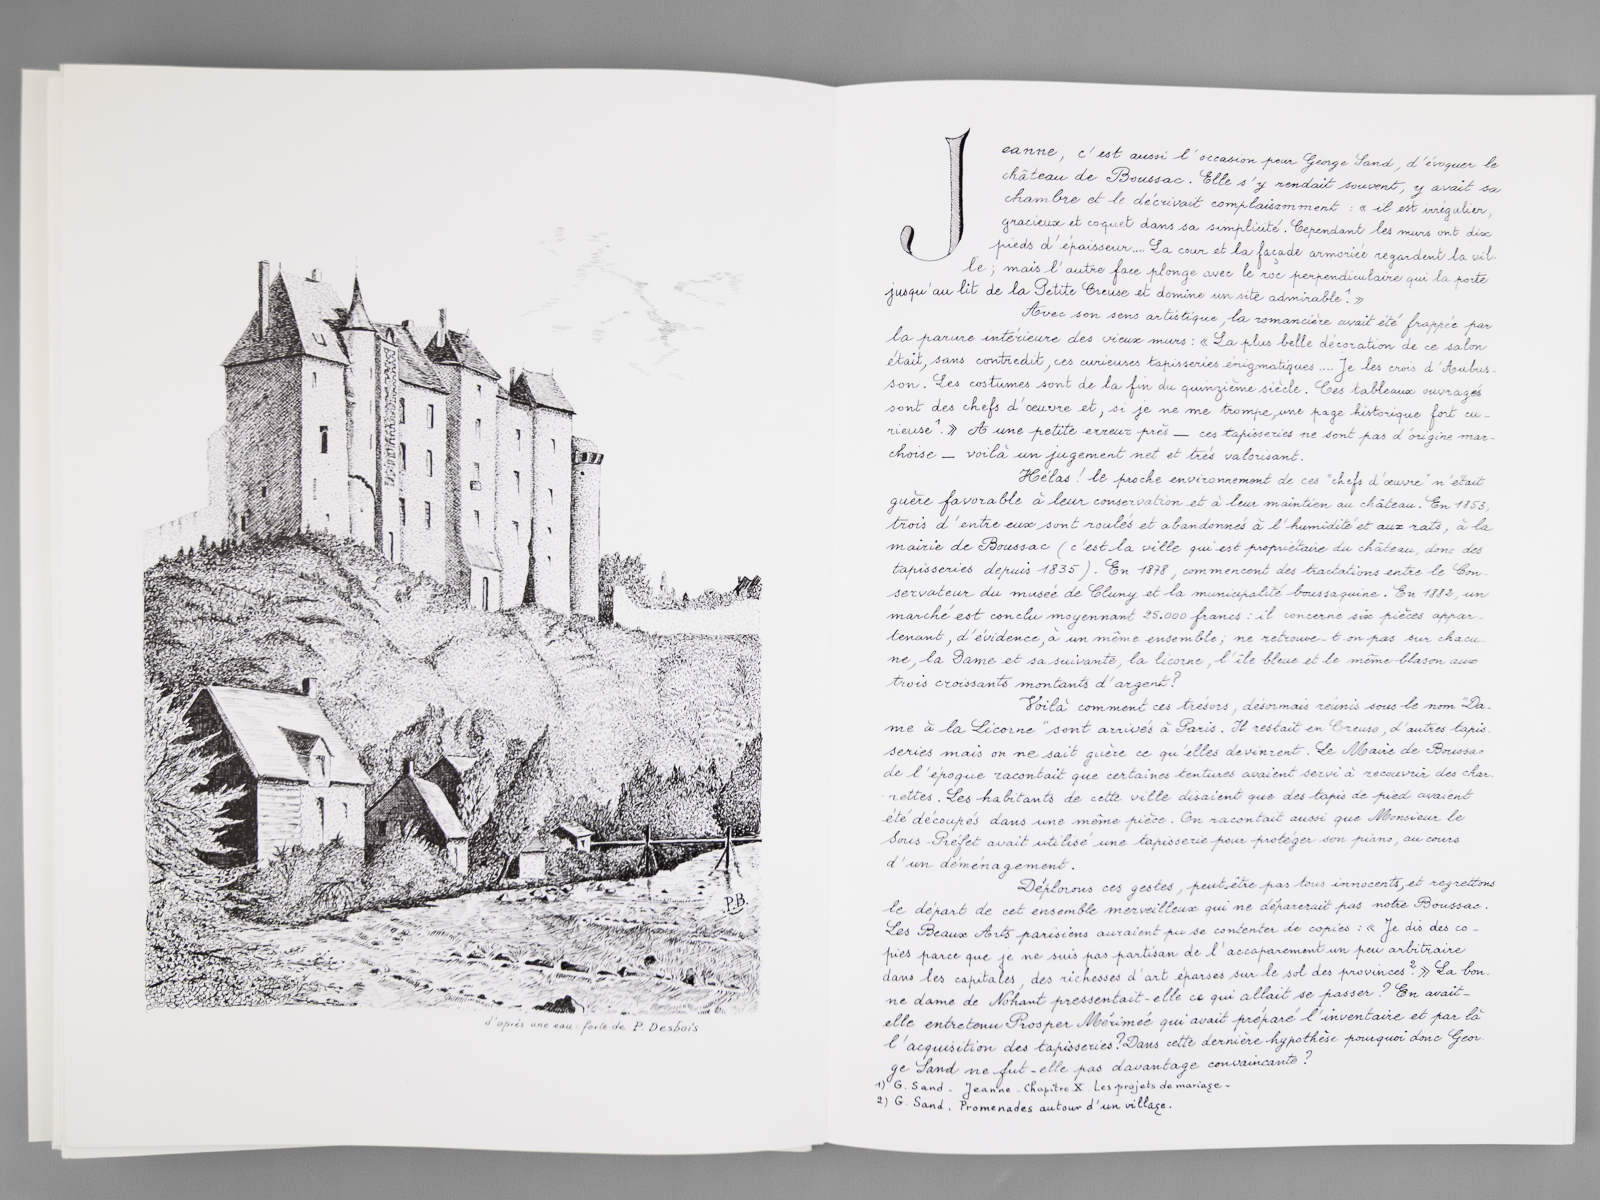 P.B.
d'après une eau-forte de P. Desbois
Jeanne, c'est aussi l'occasion pour George Sand, d'évoquer le
château de Boussac. Elle s'y rendait souvent, y avait sa
chambre et le décrivait complaisamment : « il est irrégulier,
gracieux et coquet dans sa simplicité. Cependant les murs ont dix
pieds d'épaisseur.... La cour et la façade armoriée regardent la vil-
le ; mais l'autre face plonge avec le roc perpendiculaire qui la porte
jusqu'au lit de la Petite Creuse et domine un site admirable¹. »
Avec son sens artistique, la romancière avait été frappée par
la parure intérieure des vieux murs : « La plus belle décoration de ce salon
était, sans contredit, ces curieuses tapisseries énigmatiques .... Je les crois d'Aubus-
son. Les costumes sont de la fin du quinzième siècle. Ces tableaux ouvragés
sont des chefs d'œuvre et, si je ne me trompe, une page historique fort cu-
rieuse¹. » A une petite erreur près — ces tapisseries ne sont pas d'origine mar-
choise — voilà un jugement net et très valorisant.
Hélas ! le proche environnement de ces "chefs d'œuvre" n'était
guère favorable à leur conservation et à leur maintien au château. En 1853,
trois d'entre eux sont roulés et abandonnés à l'humidité et aux rats, à la
mairie de Boussac (c'est la ville qui est propriétaire du château, donc des
tapisseries depuis 1835). En 1878, commencent des tractations entre le Con-
servateur du musée de Cluny et la municipalité boussaquine. En 1882, un
marché est conclu moyennant 25.000 francs : il concerne six pièces appar-
tenant, d'évidence, à un même ensemble ; ne retrouve-t-on pas sur chacu-
ne, la Dame et sa suivante, la licorne, l'île bleue et le même blason aux
trois croissants montants d'argent ?
Voilà comment ces trésors, désormais réunis sous le nom "Da-
me à la Licorne" sont arrivés à Paris. Il restait en Creuse, d'autres tapis-
series mais on ne sait guère ce qu'elles devinrent. Le Maire de Boussac
de l'époque racontait que certaines tentures avaient servi à recouvrir des char-
rettes. Les habitants de cette ville disaient que des tapis de pied avaient
été découpés dans une même pièce. On racontait aussi que Monsieur le
Sous-Préfet avait utilisé une tapisserie pour protéger son piano, au cours
d'un déménagement.
Déplorons ces gestes, peut-être pas tous innocents, et regrettons
le départ de cet ensemble merveilleux qui ne déparerait pas notre Boussac.
Les Beaux Arts parisiens auraient pu se contenter de copies : « Je dis des co-
pies parce que je ne suis pas partisan de l'accaparement un peu arbitraire
dans les capitales, des richesses d'art éparses sur le sol des provinces². » La bon-
ne dame de Nohant pressentait-elle ce qui allait se passer ? En avait-
elle entretenu Prosper Mérimée qui avait préparé l'inventaire et par là
l'acquisition des tapisseries ? Dans cette dernière hypothèse pourquoi donc Geor-
ge Sand ne fut-elle pas davantage convaincante ?
1) G. Sand - Jeanne - Chapitre X. Les projets de mariage -
2) G. Sand. Promenades autour d'un village.